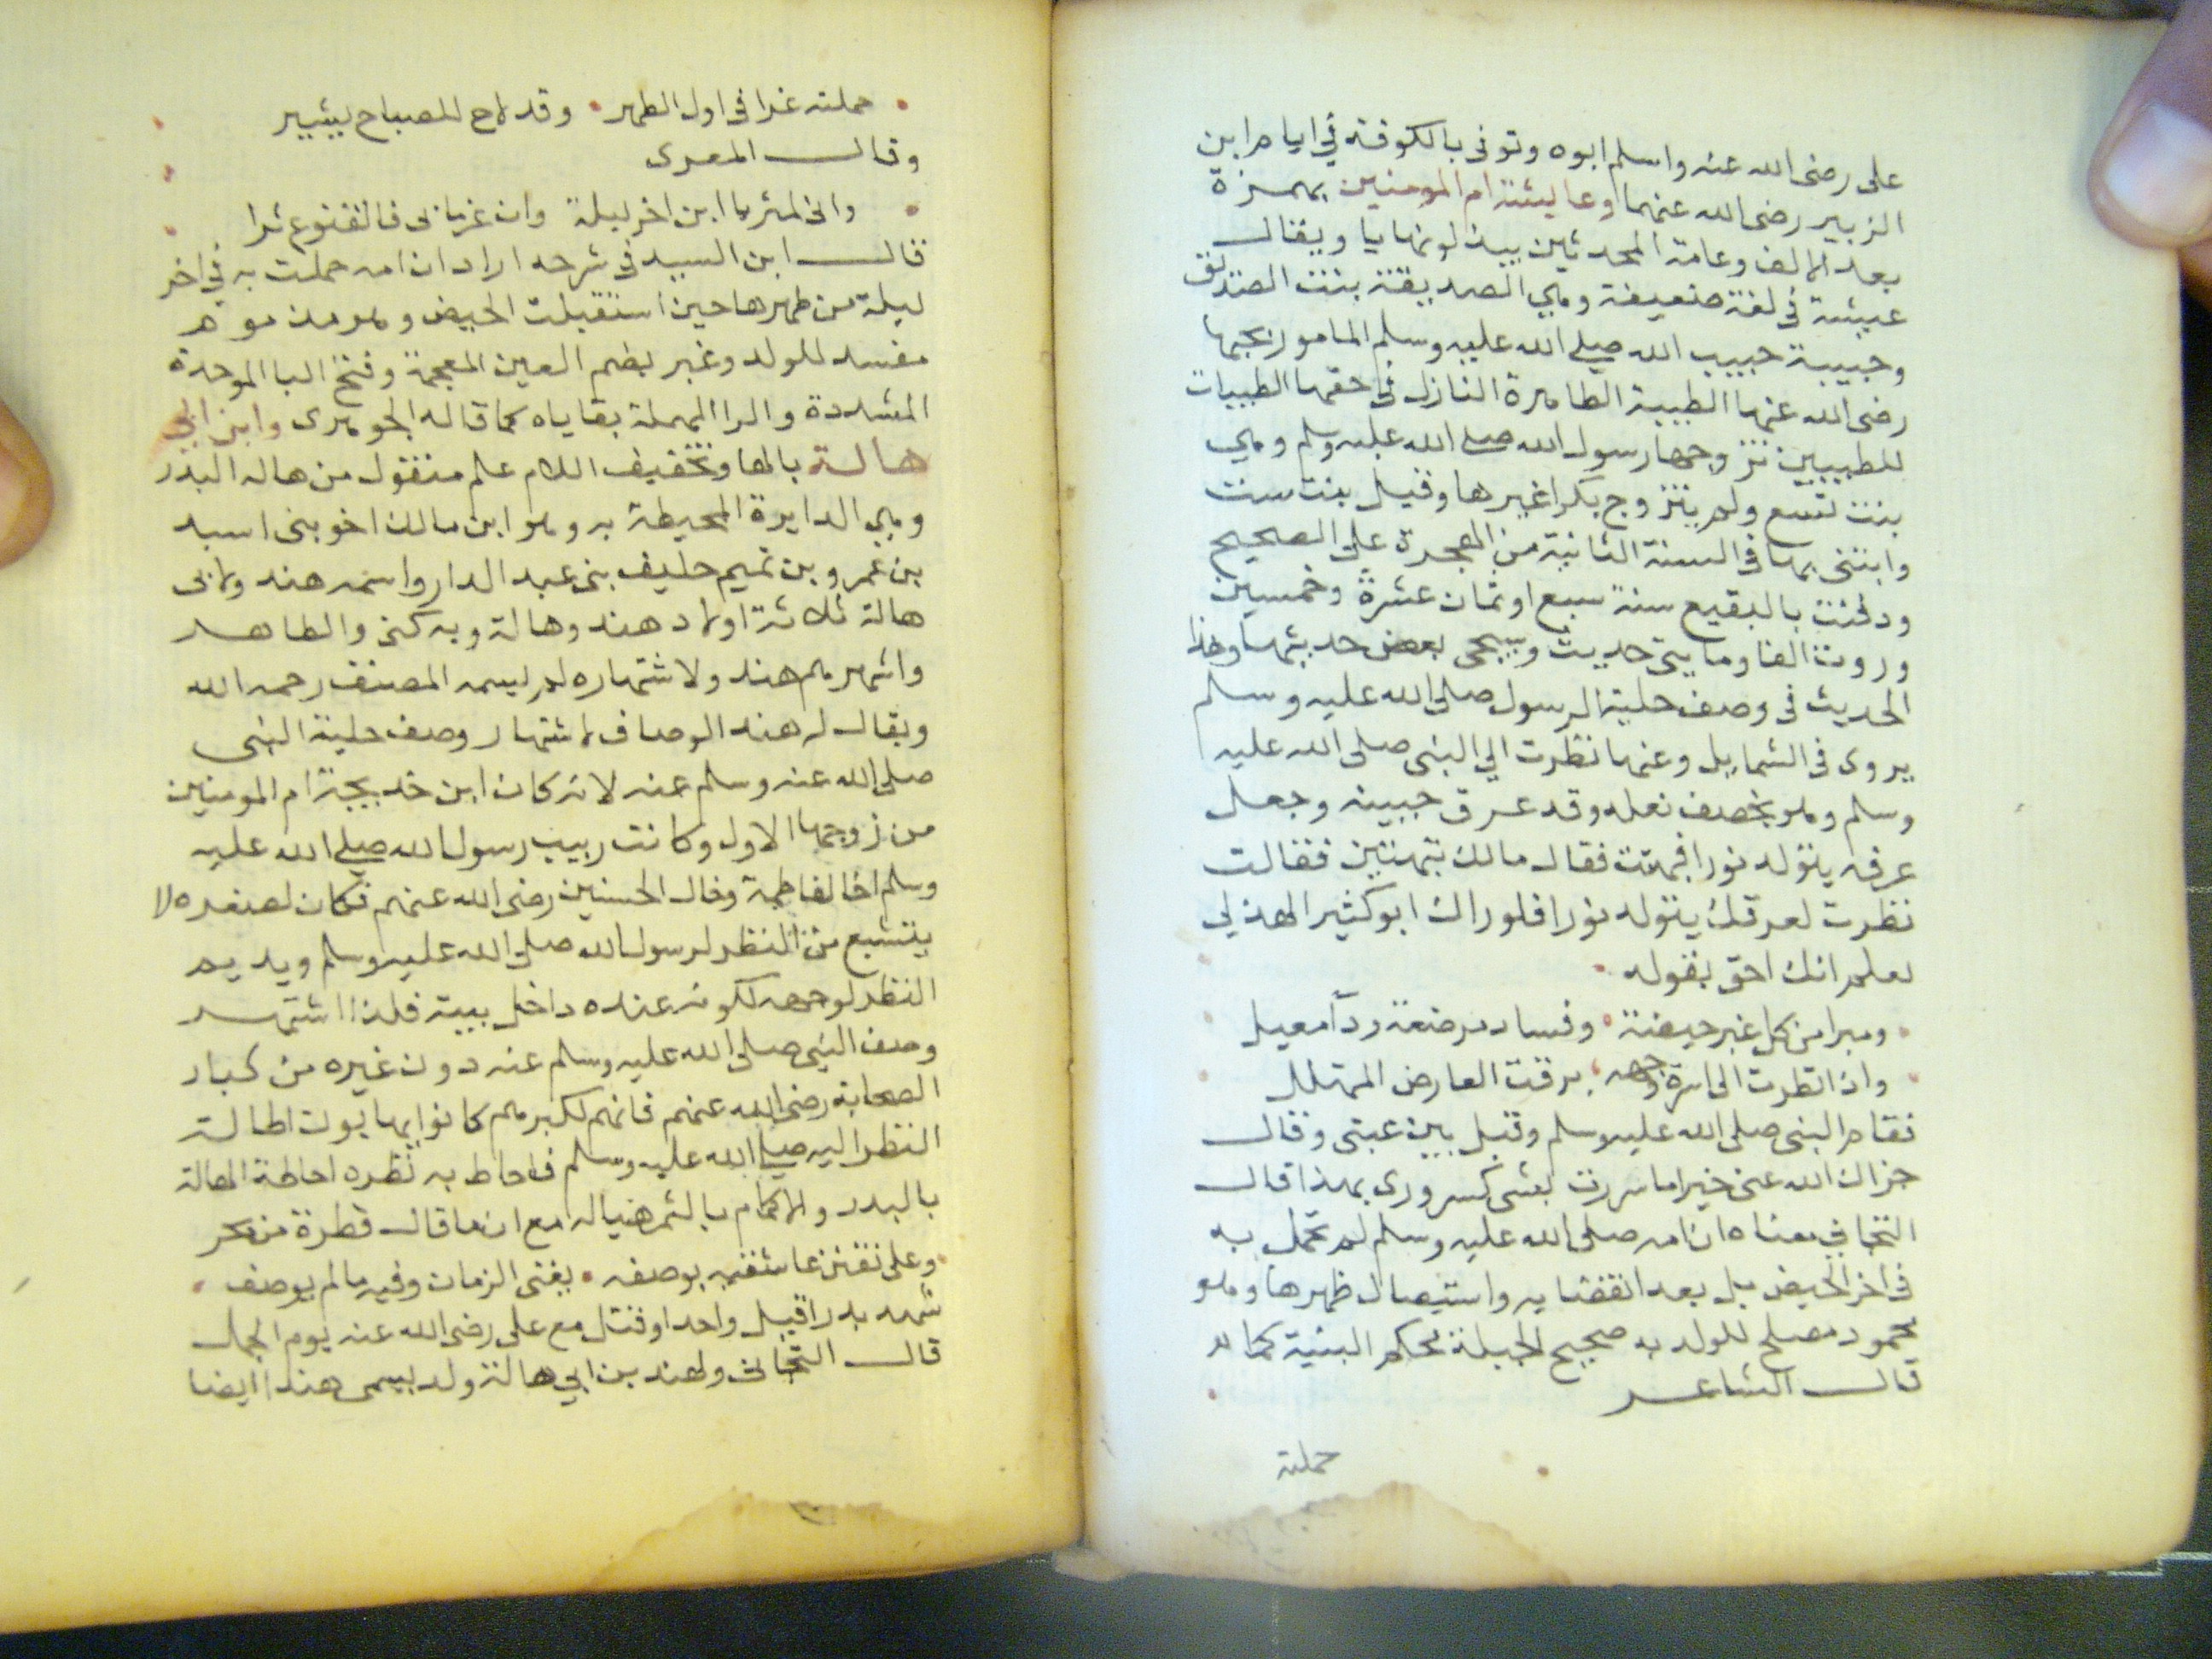 على رضى الله عنه واسلم ابوه وتوفى بالكوفة في ايام ابن
الزبير رضى الله عنهما وعايشة ام المومنين بهمزة
بعد الالف وعامة المحدثين يبدلونها يا ويقال
عيشة في لغة ضعيفة وهي الصديقة بنت الصديق
وحبيبة حبيب الله صلى الله عليه وسلم المامور بحبها
رضى الله عنها الطيبة الطاهرة النازل في حقها الطيبات
للطيبين تزوجها رسول الله صلى الله عليه وسلم وهي
بنت تسع ولم يتزوج بكرا غيرها وقيل بنت ست
وابتنى بها في السنة الثانية من الهجرة على الصحيح
ودفنت بالبقيع سنة سبع او ثمان عشرة وخمسين
وروت الفا ومايتى حديث وسيجى بعض حديثها وهذا
الحديث في وصف حلية الرسول صلى الله عليه وسلم
يروى في الشمايل وعنها نظرت الي النبى صلى الله عليه
وسلم وهو يخصف نعله وقد عرق جبينه وجعل
عرقه يتولد نورا فبهتت فقال مالك بتهتين فقالت
نظرت لعرقك يتولد نورا فلو راك ابو كثير الهذلي
لعلم انك احق بقوله
ومبرا من كل غبر حيضة وفساد مرضعة ودآ معيل
واذا نظرت الى اسرة وجهه برقت العارض المتهلل
فقام النبى صلى الله عليه وسلم وقبل بين عينى وقال
جزاك الله عنى خيرا ما سررت بشى كسرورى بهذا قال
التجاني معناه ان امه صلى الله عليه وسلم لم تحمل به
في اخر الحيض بل بعد انقضايه واستيصال طهرها وهو
محمود مصلح للولد به صحيح الجبلة محكم البنية كما
قال الشاعر
حملته
حملته غرا في اول الطهر وقد لاح للصباح بشير
وقال المعرى
وانى لمثريا ابن اخر ليلة وان عز مالى فالقنوع ثرا
قال ابن السيد في شرحه اراد ان امه حملت به في اخر
ليلة من طهرها حين استقبلت الحيض وهو مذموم
مفسد للولد وغبر بضم الغين المعجمة وفتح البا الموحدة
المشددة والرا المهملة بقاياه كما قاله الجوهرى وابن ابي
هالة بالها وتخفيف اللام علم منقول من هالة البدر
وهي الدايرة المحيطة به وهو ابن مالك اخو بنى اسيد
بن عمرو بن تميم حليف بنى عبد الدار واسمه هند ولابى
هالة ثلاثة اولاد هند وهالة وبه كنى والطاهر
واشهرهم هند ولاشتهاره لم يسمه المصنف رحمه الله
ويقال له هند الوصاف لاشتهار وصف حلية النبى
صلى الله عنه وسلم عنه لانه كان ابن خديجة ام المومنين
من زوجها الاول وكانت ربيب رسول الله صلى الله عليه
وسلم اخا لفاطمة وخال الحسنين رضى الله عنهم فكان لصغره لا
يتشبع من النظر لرسول الله صلى الله عليه وسلم ويديم
النظر لوجهه لكونه عنده داخل بيته فلذا اشتهر
وصف النبى صلى الله عليه وسلم عنه دون غيره من كبار
الصحابة رضى الله عنهم فانهم لكبرهم كانوا يهابون اطالة
النظر اليه صلى الله عليه وسلم فاحاط به نظره احاطة الهالة
بالبدر والاكمام بالثمر هنيا له مع ان ما قال قطرة من بحر
وعلى تفنن عاشقيه بوصفه يفنى الزمان وفيه مالم يوصف
شهد بدرا قيل واحدا وقتل مع على رضى الله عنه يوم الجمل
قال التجانى ولهند بن ابي هالة ولد يسمى هندا ايضا